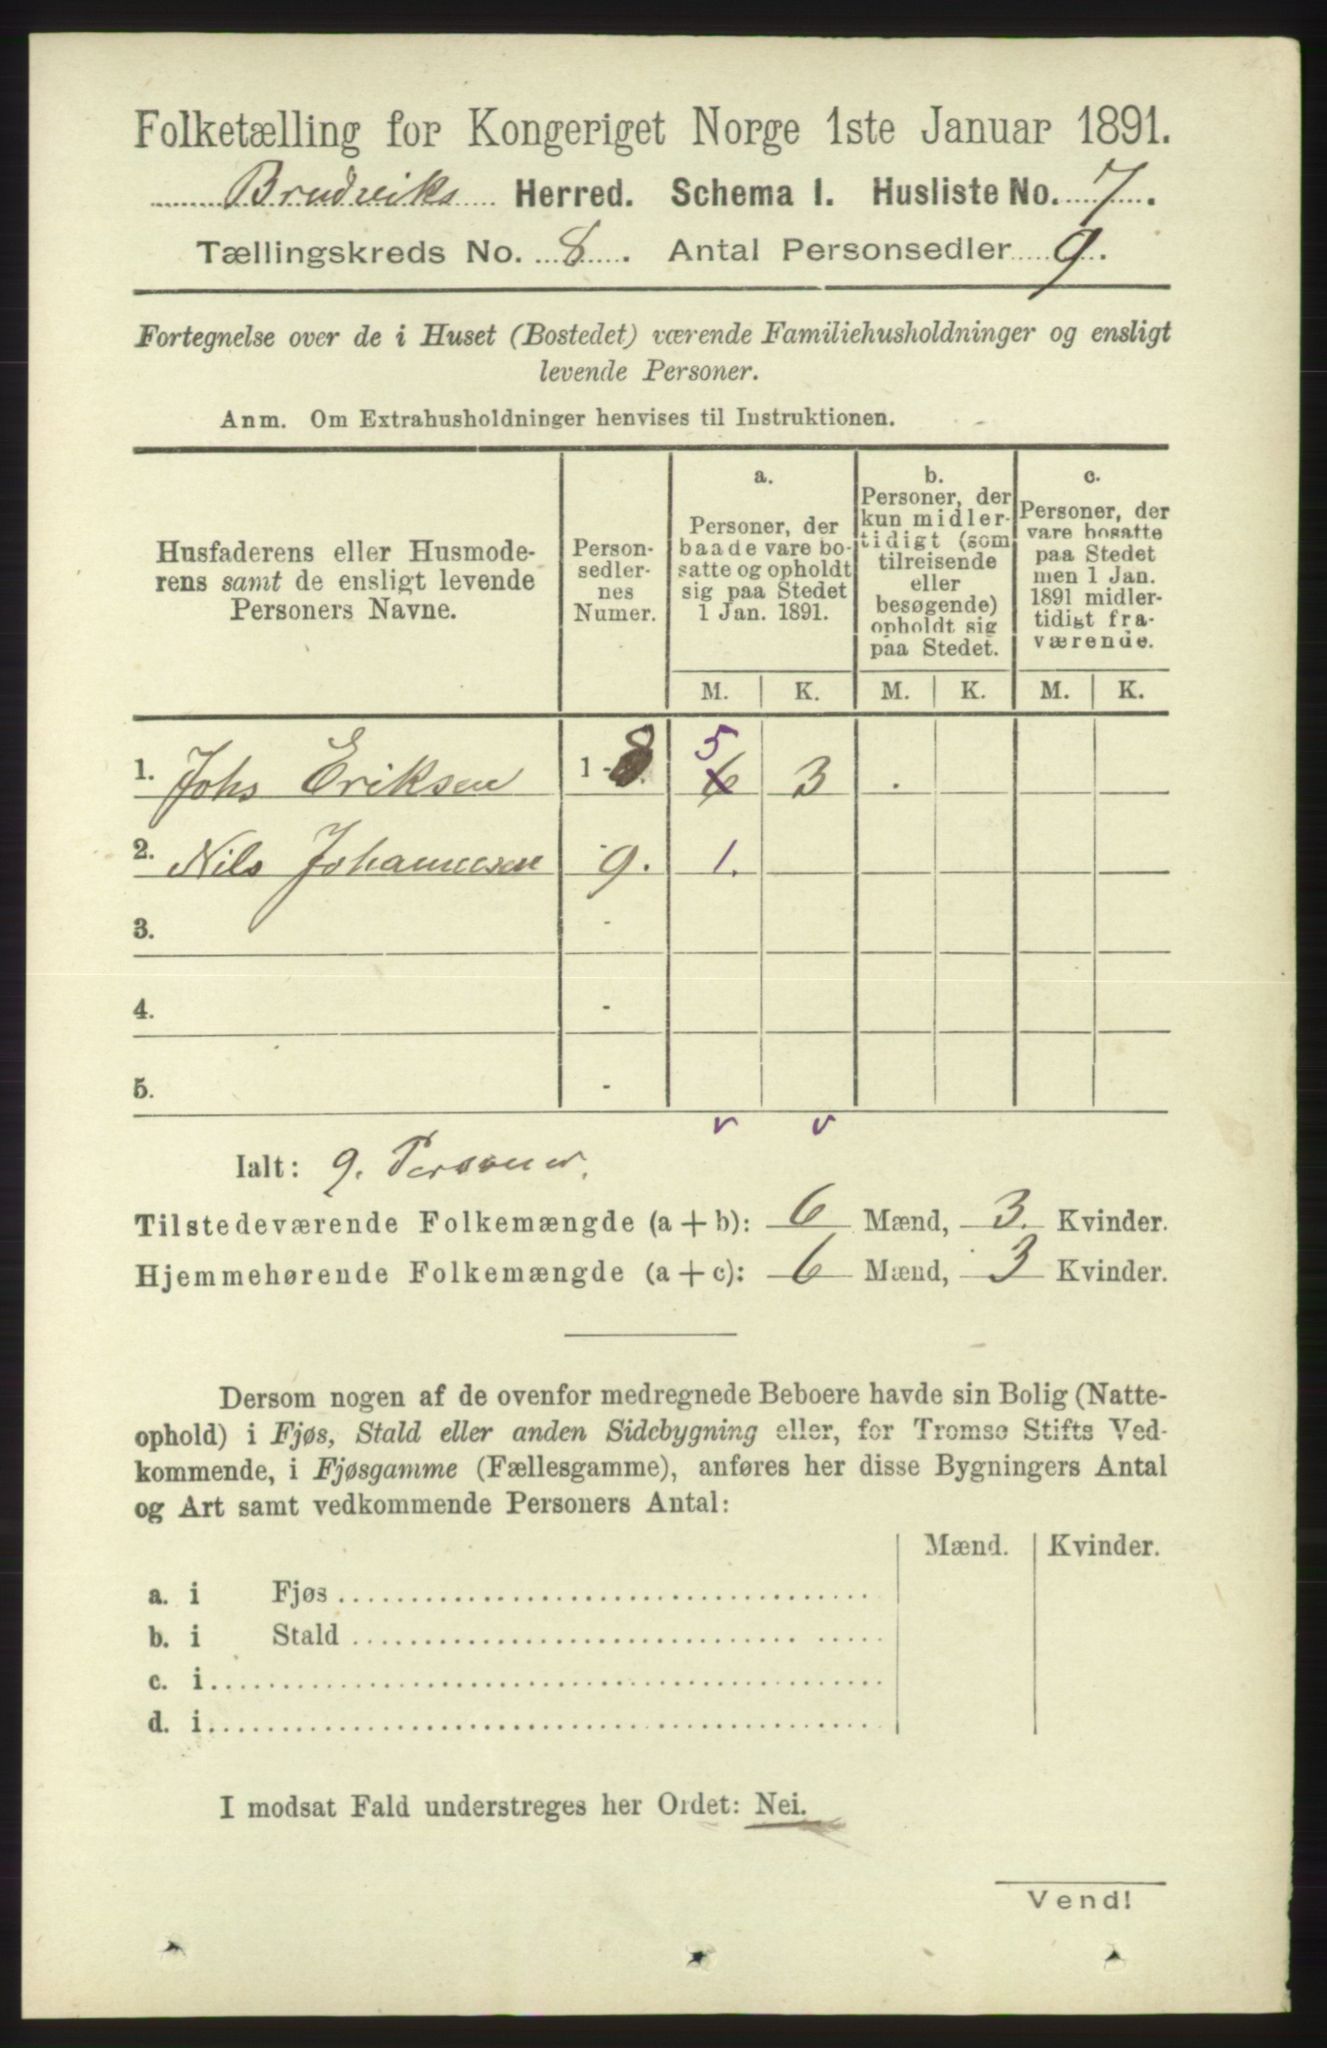 Folketælling for Kongeriget Norge 1ste Januar 1891.
Brudviks Herred. Schema I. Husliste No. 7.
Tællingskreds No. 8. Antal Personsedler 9.
Fortegnelse over de i Huset (Bostedet) værende Familiehusholdninger og ensligt
levende Personer.
Anm. Om Extrahusholdninger henvises til Instruktionen.
Husfaderens eller Husmode-
rens samt de ensligt levende
Personers Navne.
Person-
sedler-
nes
Numer.
a.
Personer, der
baade vare bo-
satte og opholdt
sig paa Stedet
1 Jan. 1891.
b.
Personer, der
kun midler-
tidigt (som
tilreisende
eller
besøgende)
opholdt sig
paa Stedet.
c.
Personer, der
vare bosatte
paa Stedet
men 1 Jan.
1891 midler-
tidigt fra-
værende.
M. K. M. K. M. K.
5
1. Johs Eriksen 1 - 8 6 3 .
2. Nils Johannesen - 9. 1.
3. -
4. -
5. -
v v
Ialt: 9. Personer.
Tilstedeværende Folkemængde (a + b): 6 Mænd, 3. Kvinder.
Hjemmehørende Folkemængde (a + c): 6 Mænd, 3 Kvinder.
Dersom nogen af de ovenfor medregnede Beboere havde sin Bolig (Natte-
ophold) i Fjøs, Stald eller anden Sidebygning eller, for Tromsø Stifts Ved-
kommende, i Fjøsgamme (Fællesgamme), anføres her disse Bygningers Antal
og Art samt vedkommende Personers Antal:
Mænd. Kvinder.
a. i Fjøs
b. i Stald
c. i
d. i
I modsat Fald understreges her Ordet: Nei.
Vend!